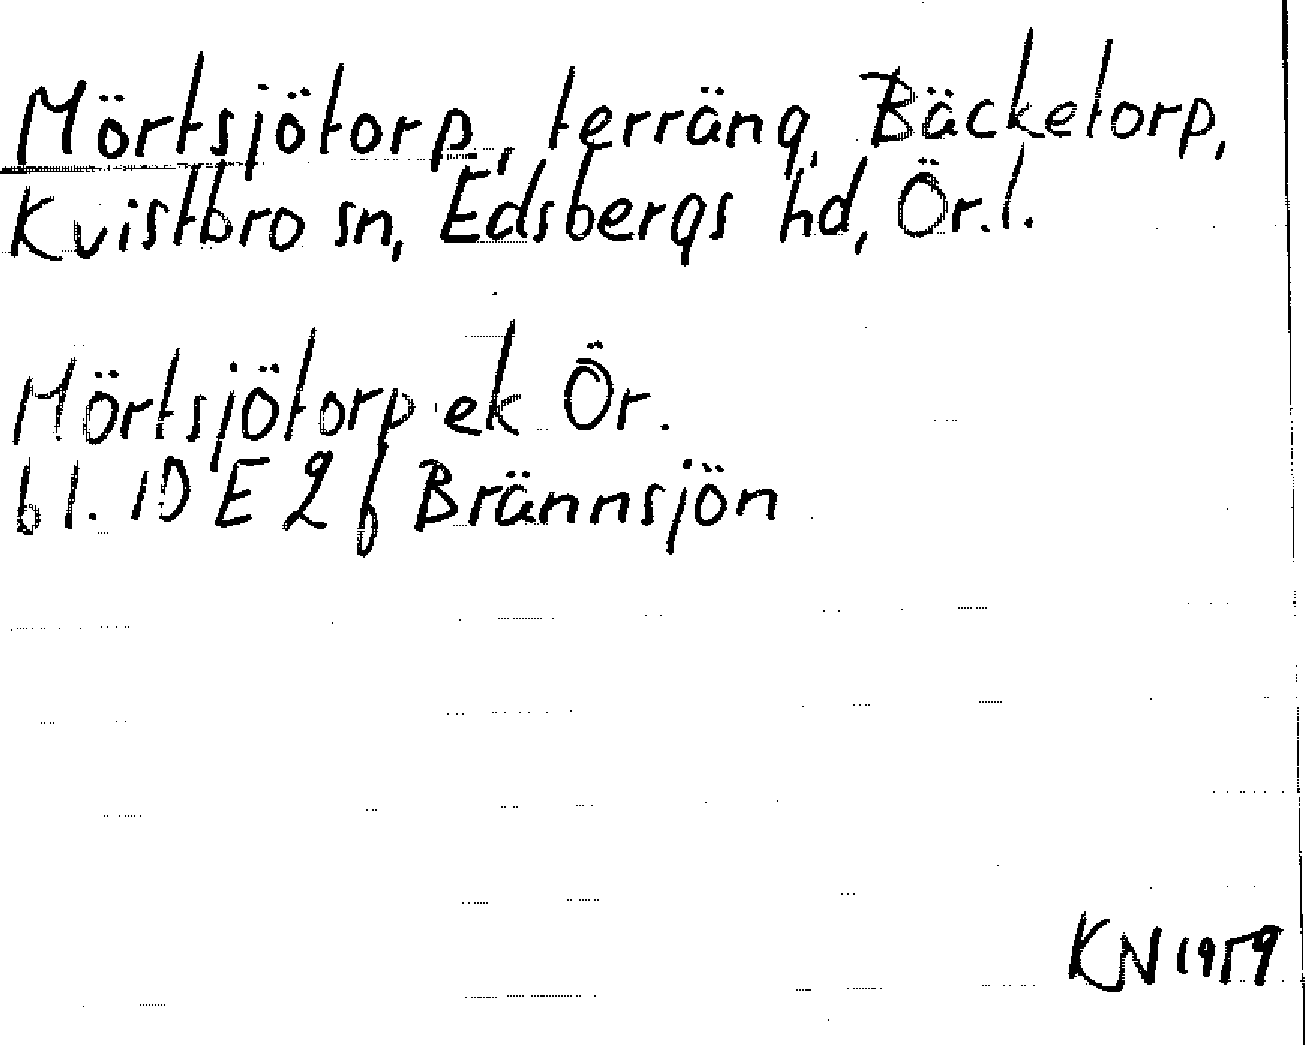 Mörtsjötorp, terräng, Bäcketorp,
Kvistbro sn, Edsbergs hd, Ör.l.
Mörtsjötorp ek Ör.
bl. 10 E 2 f Brännsjön
KN 1959